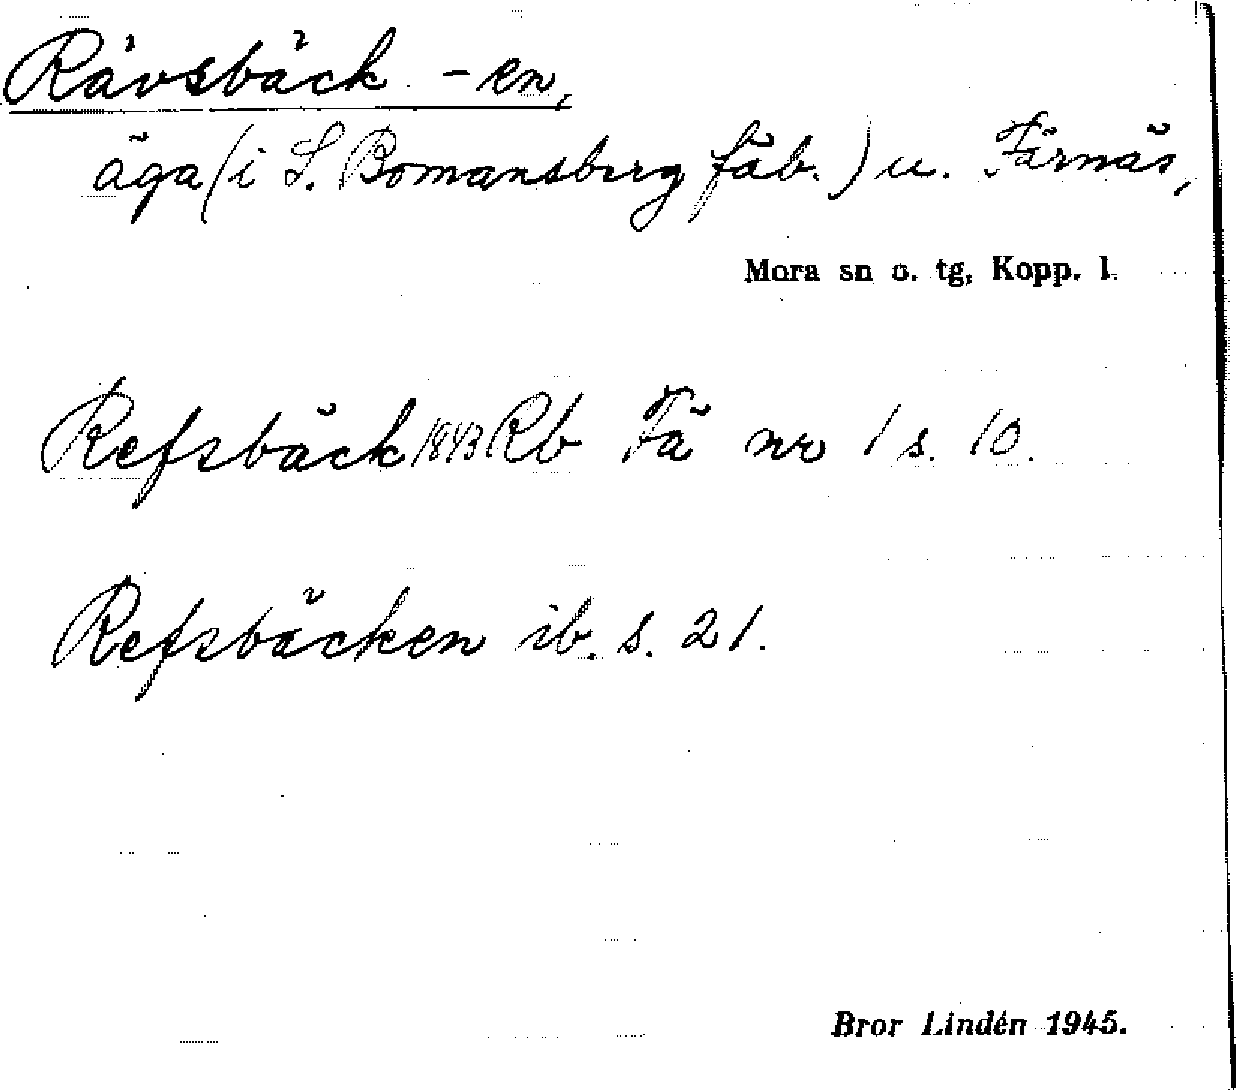 Rävsbäck -en,
äga (i S. Bomansberg fäb.) u. Färnäs,
Mora sn o. tg, Kopp. l.
Refsbäck 1843 Rb Fä nr 1 s. 10.
Refsbäcken ib. s. 21.
Bror Lindén 1945.